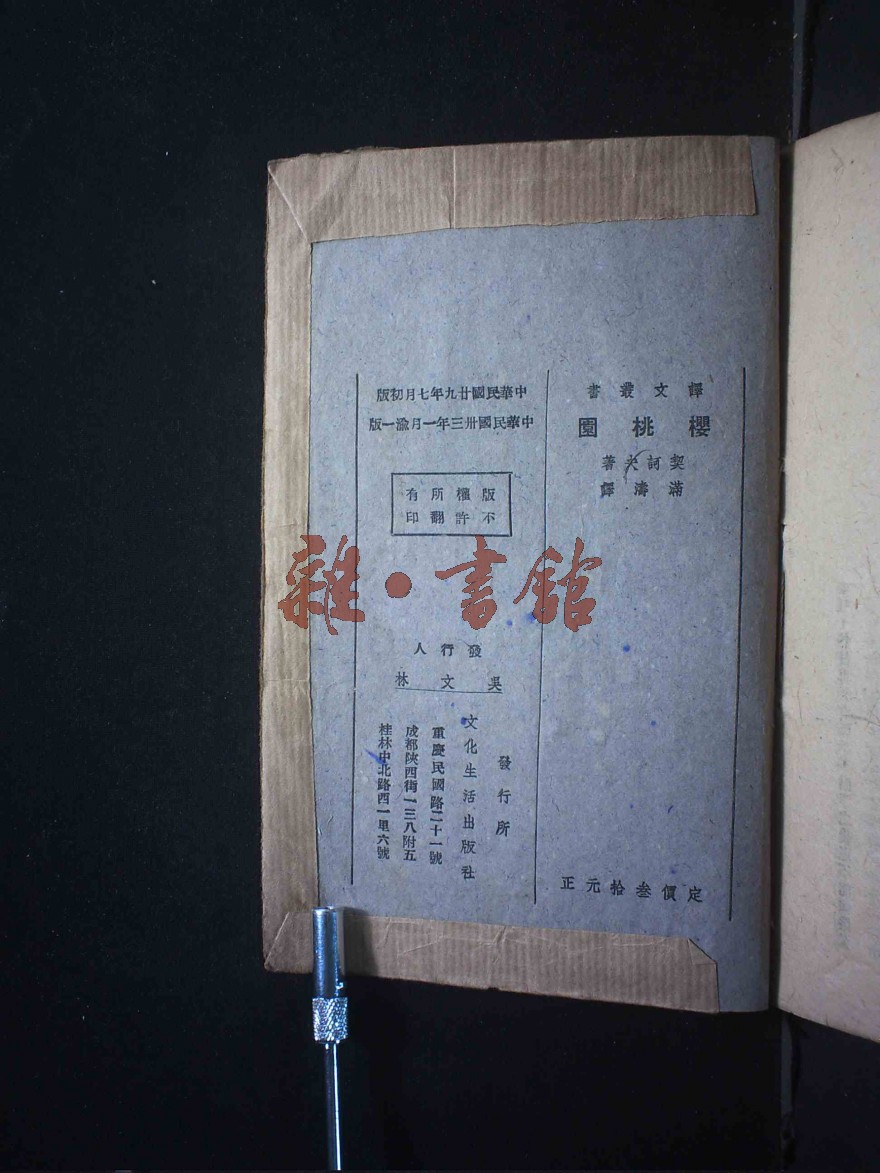 譯文叢書
櫻桃園
契訶夫著
滿濤譯
定價叁拾元正
中華民國廿九年七月初版
中華民國卅三年一月渝一版
版權所有
不許翻印
發行人
吳文林
發行所
文化生活出版社
重慶民國路二十一號
成都陝西街一三八附五
桂林中北路西一里六號
雜·書館